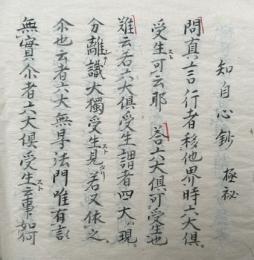 知自心鈔 極秘
問真言行者移他界時六大俱
受生可云耶 荅六大俱可受生也
難云若六大俱受生謂者四大現
分離識大獨受生見若又依之
尒也云者六大無导法門唯有言
無實尒者六大俱受生云事如何